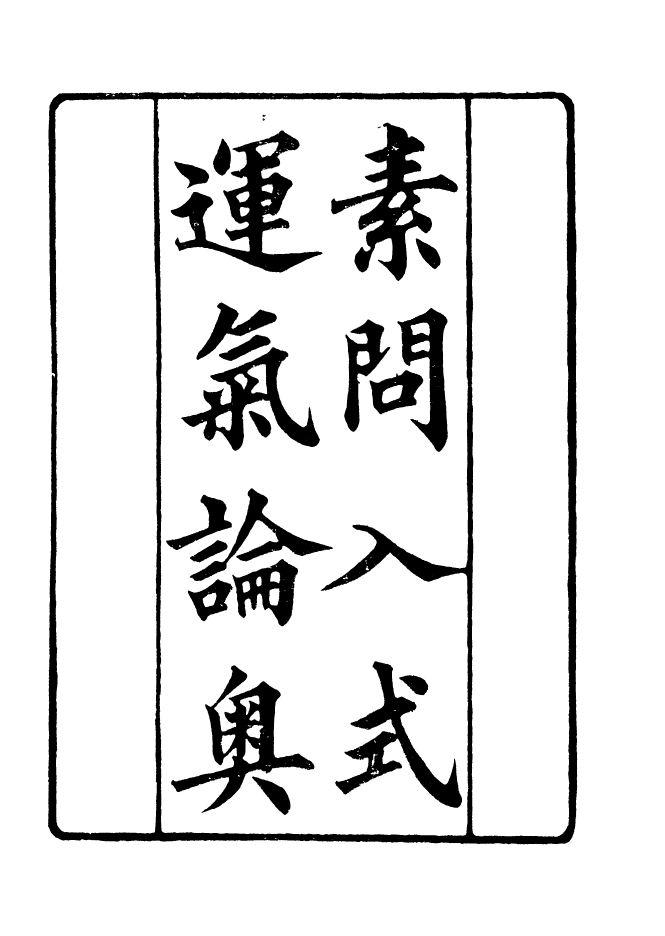 素問入式
運氣論奥